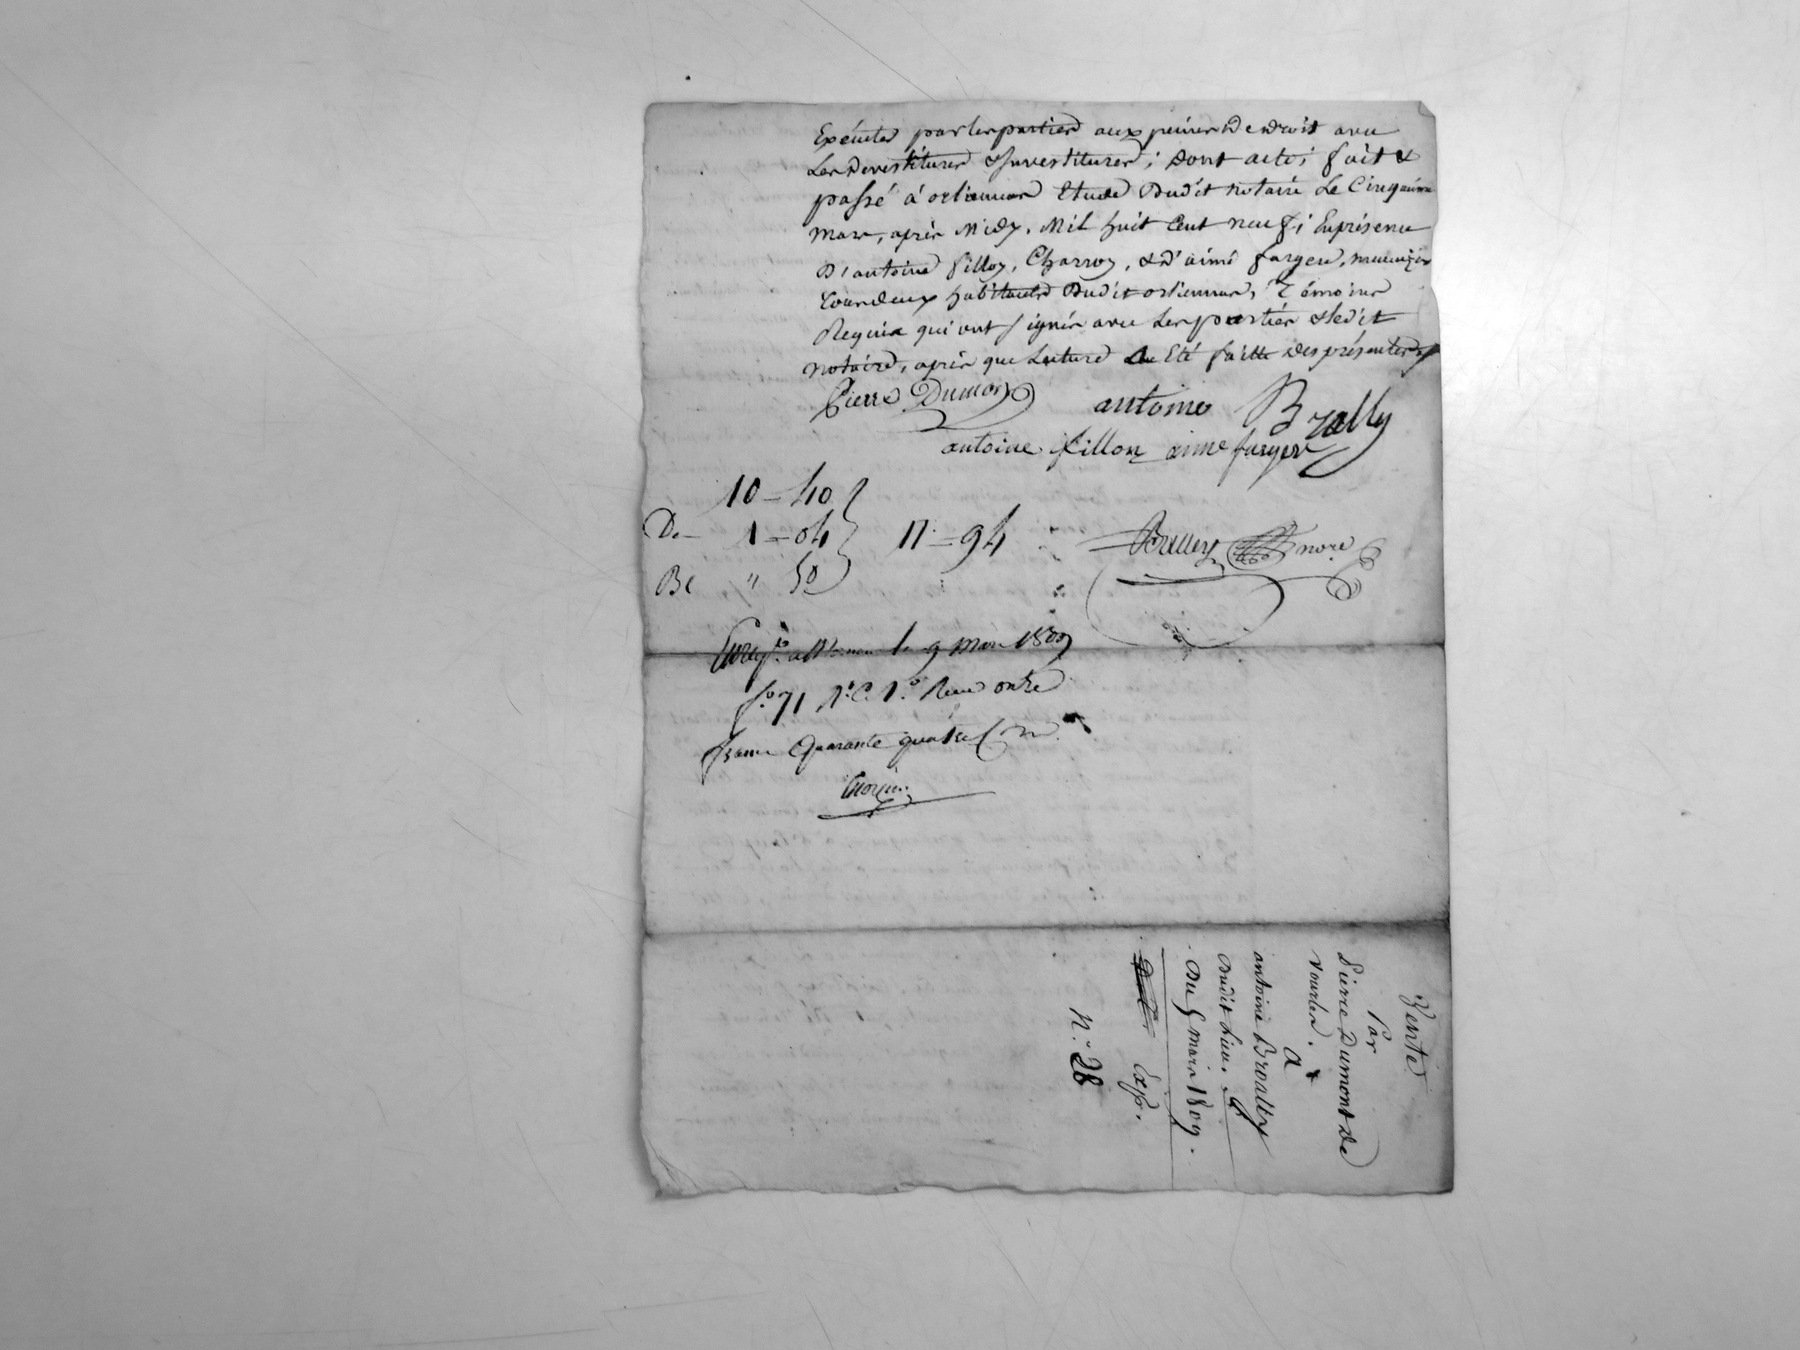 Exécuter par les parties aux peines de droit avec
Les Devestitures & Investitures; Dont acte; fait &
passé à orliennas Etude Dudit notaire Le Cinquième
mars, après Midy, Mil huit Cent neuf; En présence
D'antoine fillon, Charron, & D'aimé farger,
tous deux habitants Dudit orliennas, Témoins
Requis qui ont signés avec Les parties & ledit
notaire, après que Lecture a Eté faitte des présentes
Pierre Dumont
antoine Brally
antoine fillon aimé farger
10 = 40
D. 1 = 04 11 = 94
Be " 50
not.re
le 9 Mars 1809
f.o 71 R.o C. 1.o Reçu onze
francs Quarante quatre
Vente
Par
Pierre Dumont de
vourles.
A
antoine Broally
Dudit Lieu.
Du 5 mars 1809.
Exp.
N.o 28